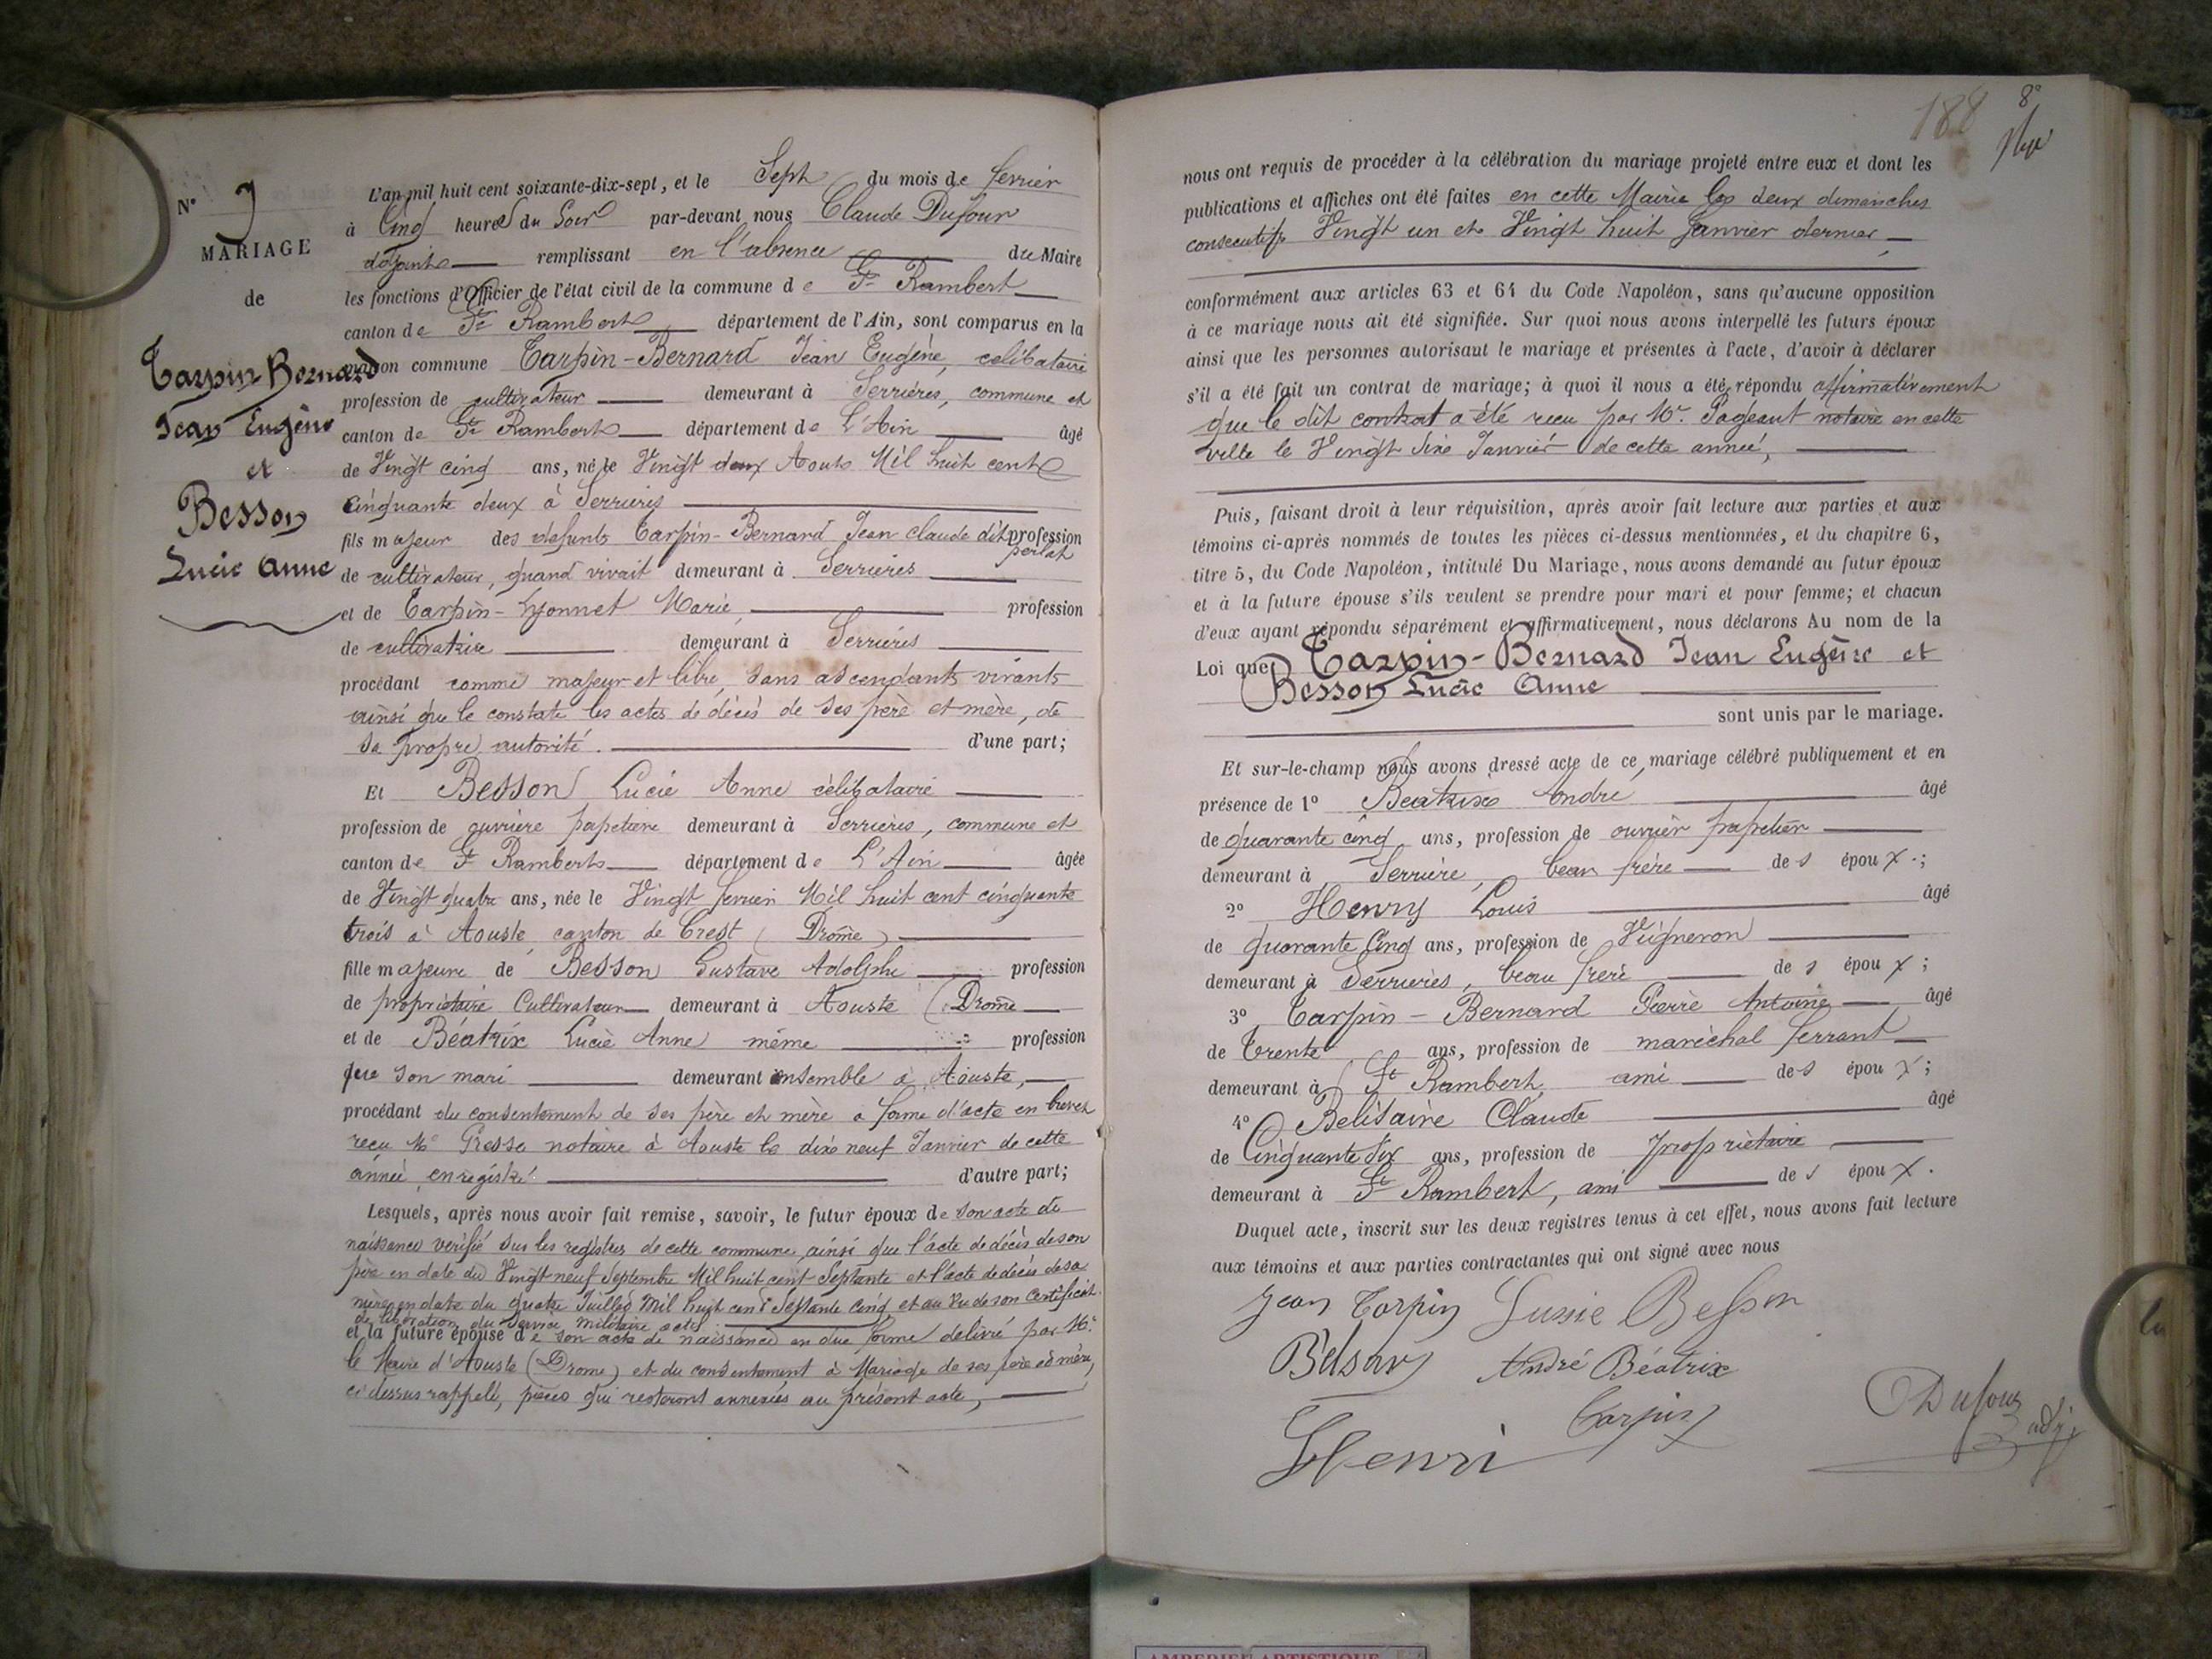 N° 9
MARIAGE
de
Tarpin-Bernard
Jean Eugène
et
Besson
Lucie Anne
L'an mil huit cent soixante-dix-sept, et le Sept du mois de fevrier
à Cinq heures du Soir par-devant nous Claude Dufour
adjoint remplissant en l'absence du Maire
les fonctions d'Officier de l'état civil de la commune de St Rambert
canton de St Rambert département de l'Ain, sont comparus en la
maison commune Tarpin-Bernard Jean Eugène, celibataire
profession de cultivateur demeurant à Serrières, commune et
canton de St Rambert département de L'Ain âgé
de Vingt cinq ans, né le Vingt deux Aout Mil huit cent
cinquante deux à Serrieres
fils majeur des defunts Tarpin-Bernard Jean Claude dit perlat profession
de cultivateur, quand vivait demeurant à Serrieres
et de Tarpin-Lyonnet Marie, profession
de cultivatrice demeurant à Serrieres
procédant comme majeur et libre, sans ascendants vivants
ainsi que le constate les actes de décès de ses père et mère, de
sa propre autorité. d'une part;
Et Besson Lucie Anne célibataire
profession de ouvriere papetiere demeurant à Serrieres, commune et
canton de St Rambert département de L'Ain âgée
de Vingt quatre ans, née le Vingt fevrier Mil huit cent cinquante
trois à Aouste canton de Crest (Drome)
fille majeure de Besson Gustave Adolphe profession
de propriétaire Cultivateur demeurant à Aouste (Drome
et de Béatrix Lucie Anne même profession
que son mari demeurant ensemble à Aouste,
procédant du consentement de ses père et mère à forme d'acte en brevet
reçu Me Gresse notaire à Aouste le dix neuf Janvier de cette
année, enregistré d'autre part;
Lesquels, après nous avoir fait remise, savoir, le futur époux de son acte de
naissance verifié sur les registres de cette commune ainsi que l'acte de décès de son
père en date du Vingt neuf Septembre Mil huit cent Septante et l'acte de decès de sa
mère en date du quatre Juillet Mil huit cent Septante cinq et au Vu de son Certificat
de libération du Service militaire actif.
et la future épouse de son acte de naissance en due forme delivré par Mr
le Maire d'Aouste (Drome) et du consentement à Mariage de ses père et mère,
ci dessus rappelé, pièces qui resteront annexées au présent acte,
188 8e
nous ont requis de procéder à la célébration du mariage projeté entre eux et dont les
publications et affiches ont été faites en cette Mairie les deux dimanches
consecutifs Vingt un et Vingt huit Janvier dernier
conformément aux articles 63 et 64 du Code Napoléon, sans qu'aucune opposition
à ce mariage nous ait été signifiée. Sur quoi nous avons interpellé les futurs époux
ainsi que les personnes autorisant le mariage et présentes à l'acte, d'avoir à déclarer
s'il a été fait un contrat de mariage; à quoi il nous a été répondu affirmativement
que le dit contrat a été reçu par Me Pageaut notaire en cette
ville le Vingt Six Janvier de cette année,
Puis, faisant droit à leur réquisition, après avoir fait lecture aux parties et aux
témoins ci-après nommés de toutes les pièces ci-dessus mentionnées, et du chapitre 6,
titre 5, du Code Napoléon, intitulé Du Mariage, nous avons demandé au futur époux
et à la future épouse s'ils veulent se prendre pour mari et pour femme; et chacun
d'eux ayant répondu séparément et affirmativement, nous déclarons Au nom de la
Loi que Tarpin-Bernard Jean Eugène et
Besson Lucie Anne
sont unis par le mariage.
Et sur-le-champ nous avons dressé acte de ce mariage célébré publiquement et en
présence de 1° Beatrix André âgé
de quarante cinq ans, profession de ouvrier papetier
demeurant à Serriere, beau frère des époux.;
2° Henry Louis âgé
de quarante Cinq ans, profession de Vigneron
demeurant à Serrieres, beau frere des époux;
3° Tarpin-Bernard Pierre Antoine âgé
de trente ans, profession de maréchal ferrant
demeurant à St Rambert, ami des époux;
4° Belisaire Claude âgé
de Cinquante Six ans, profession de propriétaire
demeurant à St Rambert, ami des époux.
Duquel acte, inscrit sur les deux registres tenus à cet effet, nous avons fait lecture
aux témoins et aux parties contractantes qui ont signé avec nous
Jean Tarpin Lussie Besson
André Béatrix
Tarpin
Dufour
adj.
Henri
AMBERIEU ARTISTIQUE